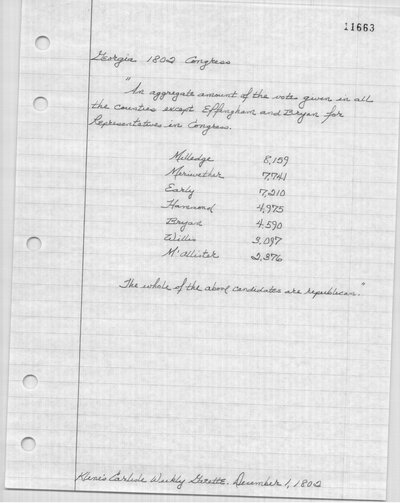 11663
Georgia 1802 Congress
"An aggregate amount of the votes given in all
the Counties except Effingham and Bryan for
Representatives in Congress.
Milledge 8,159
Meriwether 7,741
Early 7,210
Hammond 4,975
Bryan 4,590
Willis 3,097
McAllister 2,376
The whole of the above candidates are republican."
Kline's Carlisle Weekly Gazette. December 1, 1802